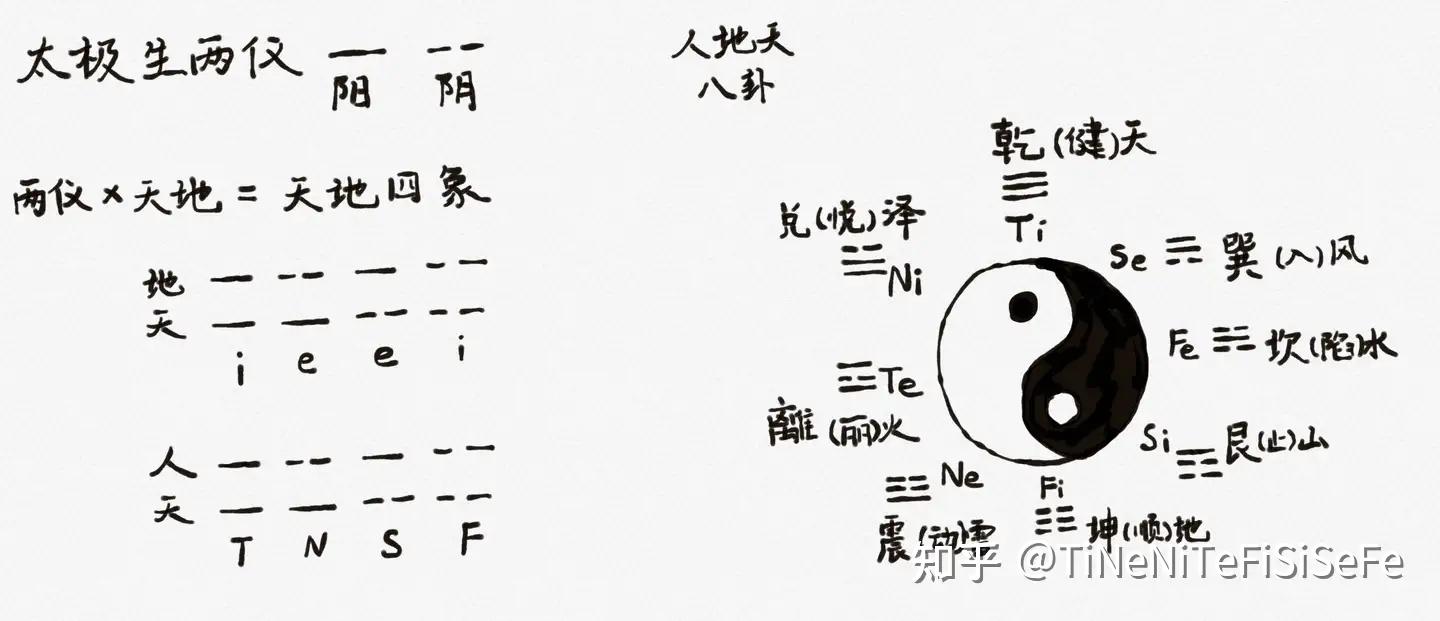 太极生两仪
阳 阴
两仪×天地=天地四象
地
天
i e e i
人
天
T N S F
人地天
八卦
乾(健)天
Ti
兑(悦)泽
Ni
Se 巽(入)风
Fe 坎(陷)水
Te
離(丽)火
Si 艮(止)山
Ne
震(动)雷
Fi
坤(顺)地
知乎 @TiNeNiTeFiSiSeFe